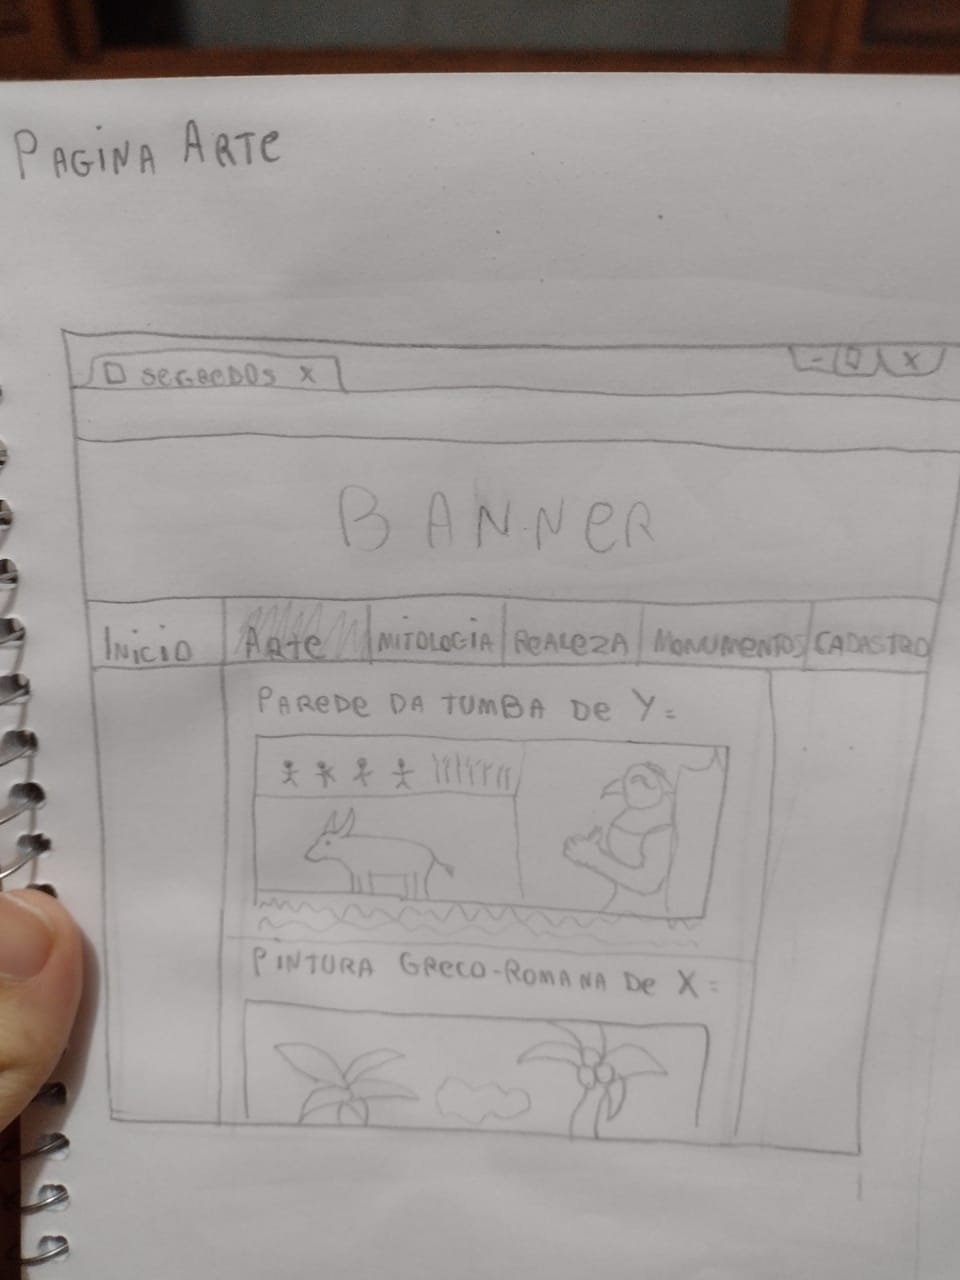 PAGINA ARTe
SeGReDOS X
- X
BANNeR
INiCiO ARte MiTOLOGiA ReALeZA MONUMeNTOS CADASTRO
PAReDe DA TUMBA De Y=
PiNTURA GReCO-ROMANA De X=